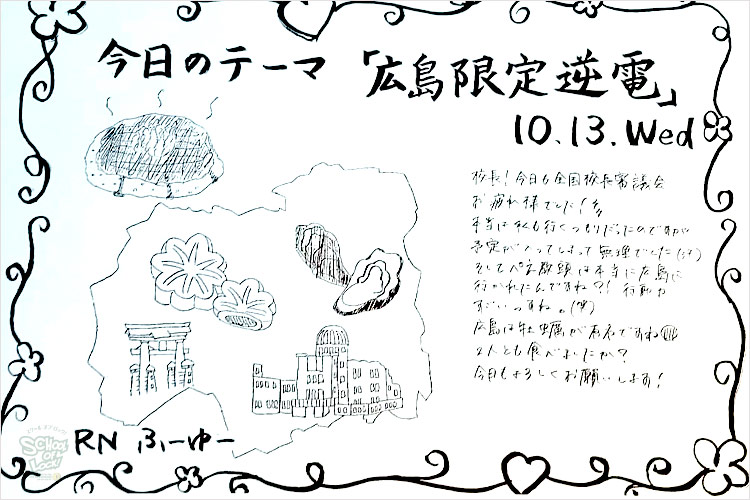 今日のテーマ「広島限定逆電」
10.13.Wed
校長!今日も全国校長審議会
お疲れ様でした!
本当は私も行くつもりだったのですが
予定が入ってしまって無理でした(泣)
そしてぺえ教頭は本当に広島に
行かれたんですね?!行動力
すごいっすね。(笑)
広島は牡蠣が有名ですね
2人とも食べましたか?
今日もよろしくお願いします!
RN ふーゆー
SCHOOL OF LOCK!